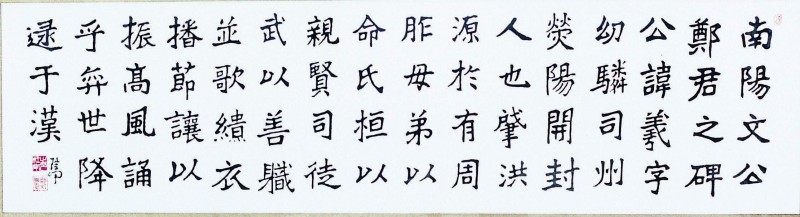 南陽文公
鄭君之碑
公諱羲字
幼驎司州
熒陽開封
人也肇洪
源於有周
胙母弟以
命氏桓以
親賢司徒
武以善職
並歌繢衣
播節讓以
振髙風誦
乎弈世降
逯于漢